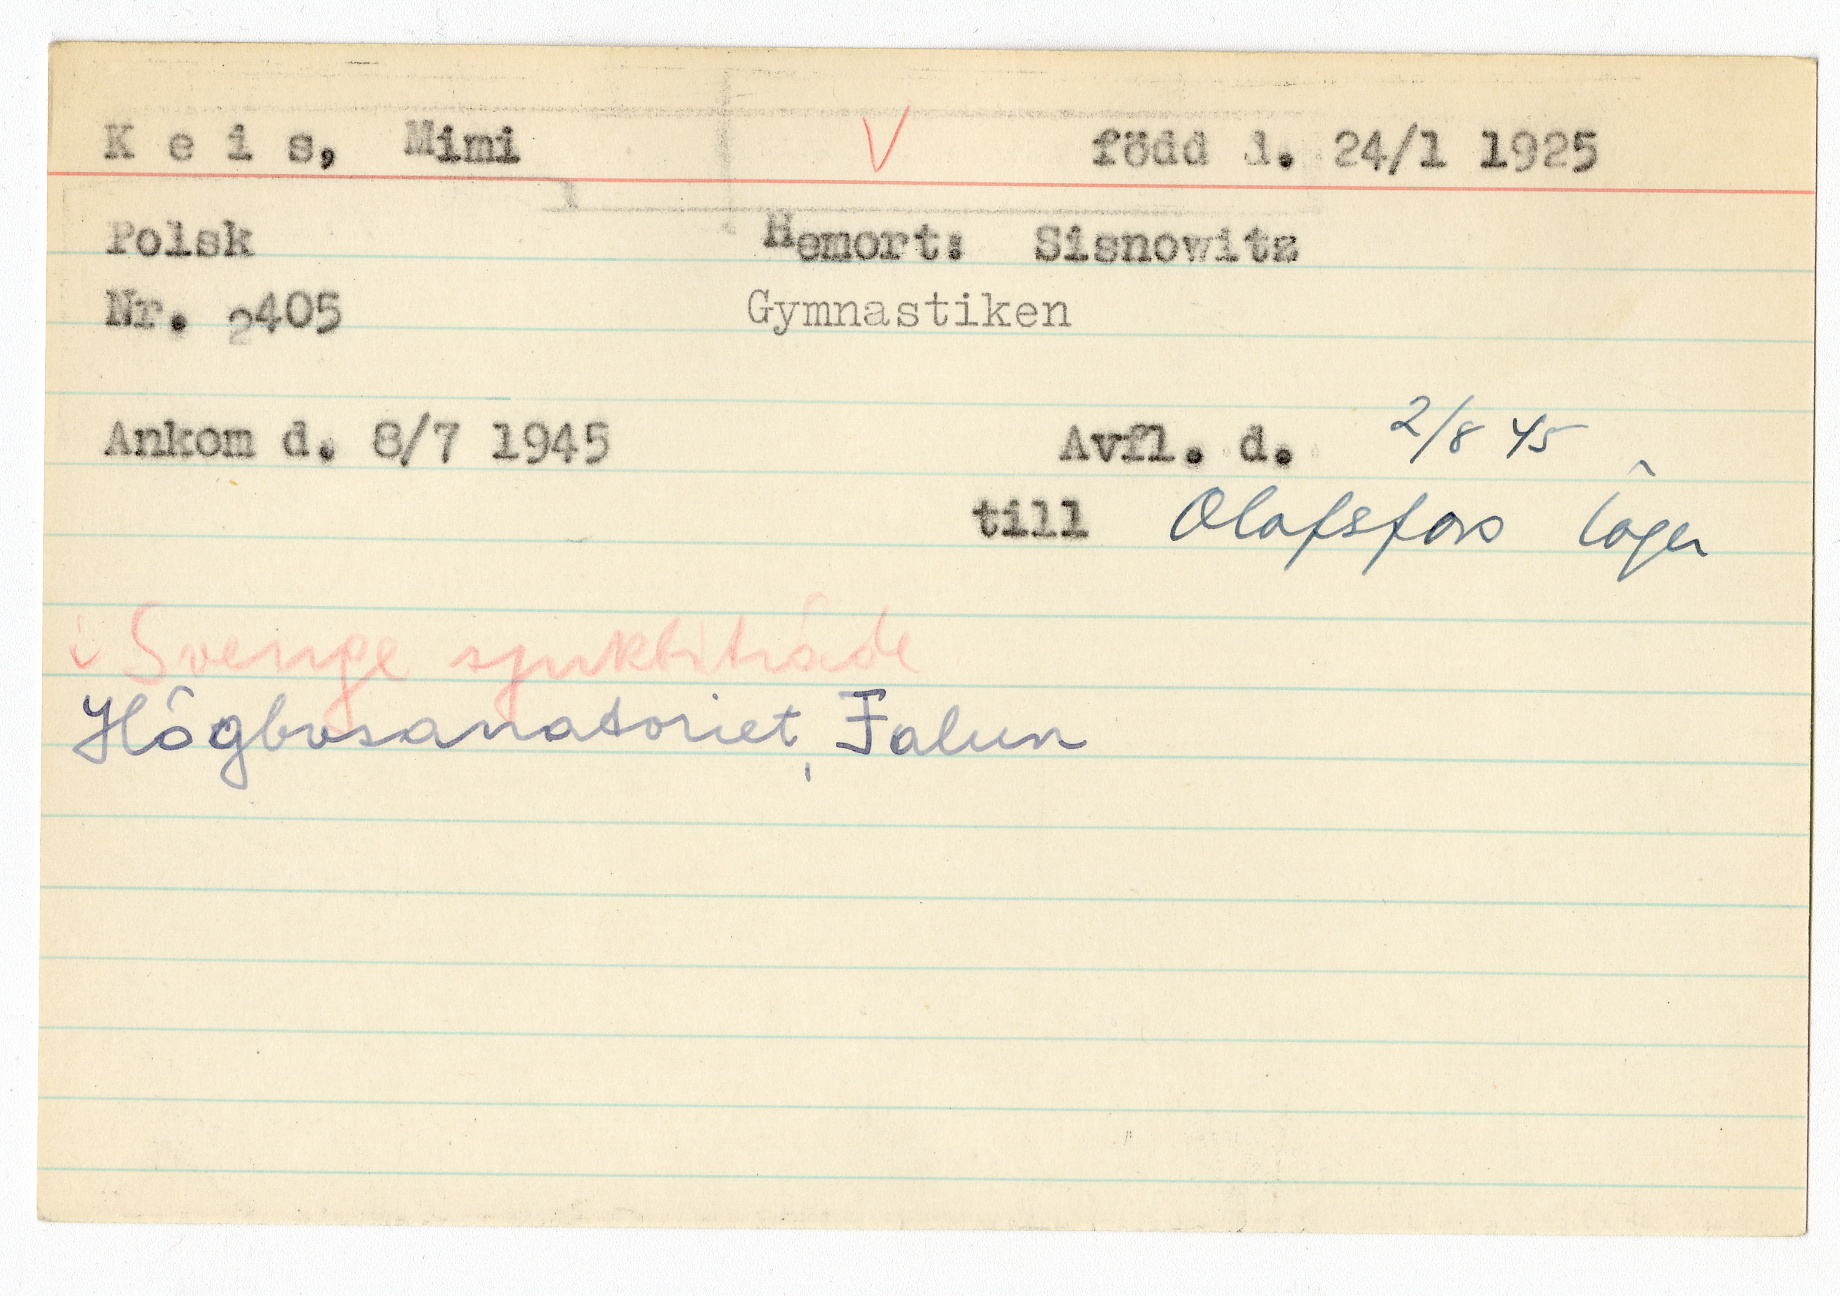 K e i s, Mimi V född d. 24/1 1925
Polsk Hemort: Sisnowitz
Nr. 2405 Gymnastiken
Ankom d. 8/7 1945 Avfl. d. 2/8 45
till Olofsfors läger
i Sverige sjukbiträde
Högbosanatoriet, Falun